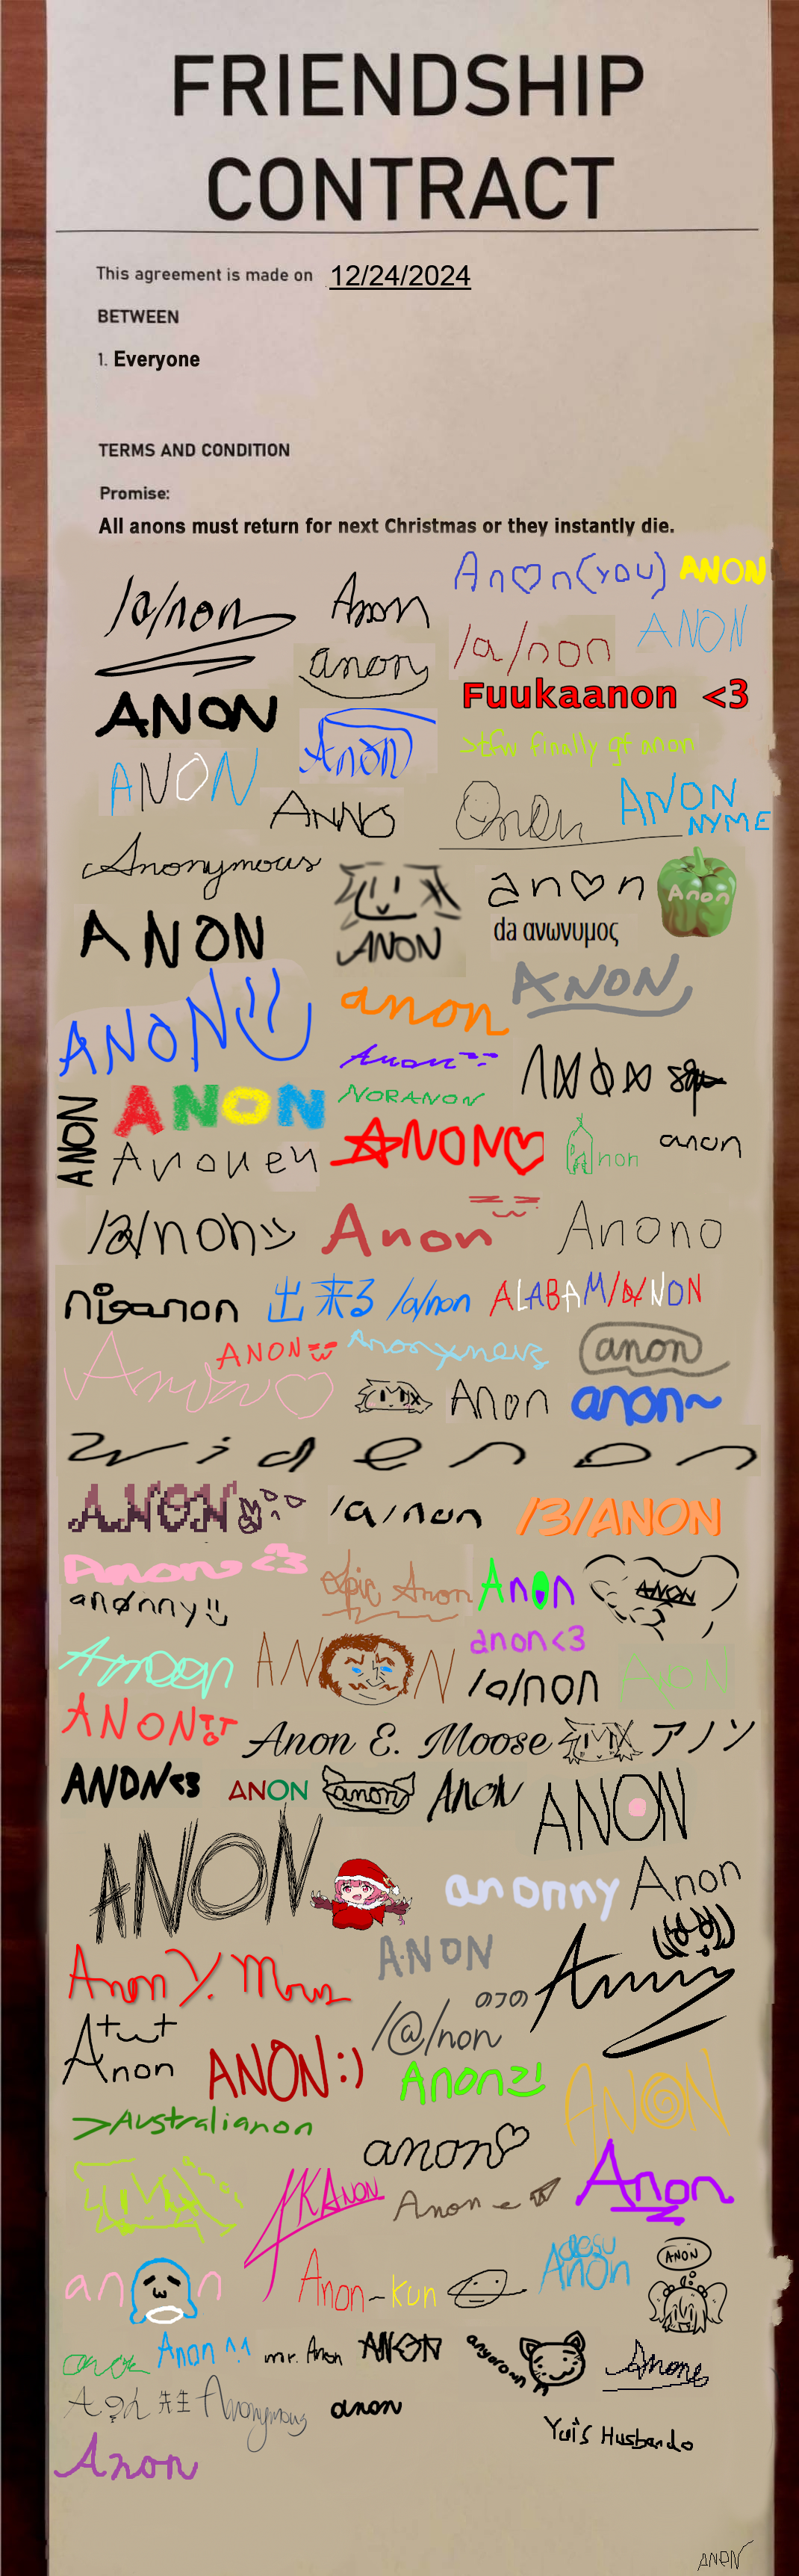 FRIENDSHIP
CONTRACT
This agreement is made on 12/24/2024
BETWEEN
1. Everyone
TERMS AND CONDITION
Promise:
All anons must return for next Christmas or they instantly die.
An♡n(YOU) ANON
/a/non Anon
/a/non ANON
anon
ANON Fuukaanon <3
Anon >tfw finally gf anon
ANON
ANNO ANON
NYME
Anonymous
an♡n Anon
ANON ANON da ανωνυμος
ANON
anon
ANON
Anon
NORANON
ANON ANON
ANON♡ non anon
/a/non Anon Anono
nisanon 出来る /a/non ALABAM/A/NON
ANON
anon
Anon anon~
widen on
ANON /a/non /3/ANON
Anon <3
Epic Anon Anon ANON
anønny
anon<3
AN N /a/non
ANON
Anon E. Moose アノン
ANON<3 ANON anon Anon ANON
ANON
anonny Anon
Anon Y. Mous ANON
のつの
/@/non
Anon ANON:) Anon ANON
>Australianon
anon♡
anon
KANON Anon Anon
an n Anon-kun desu
Anon ANON
Anon ^^ mr. Anon ANON
Anone
先生 Anonymous anon
Yui's Husbando
Anon
ANON